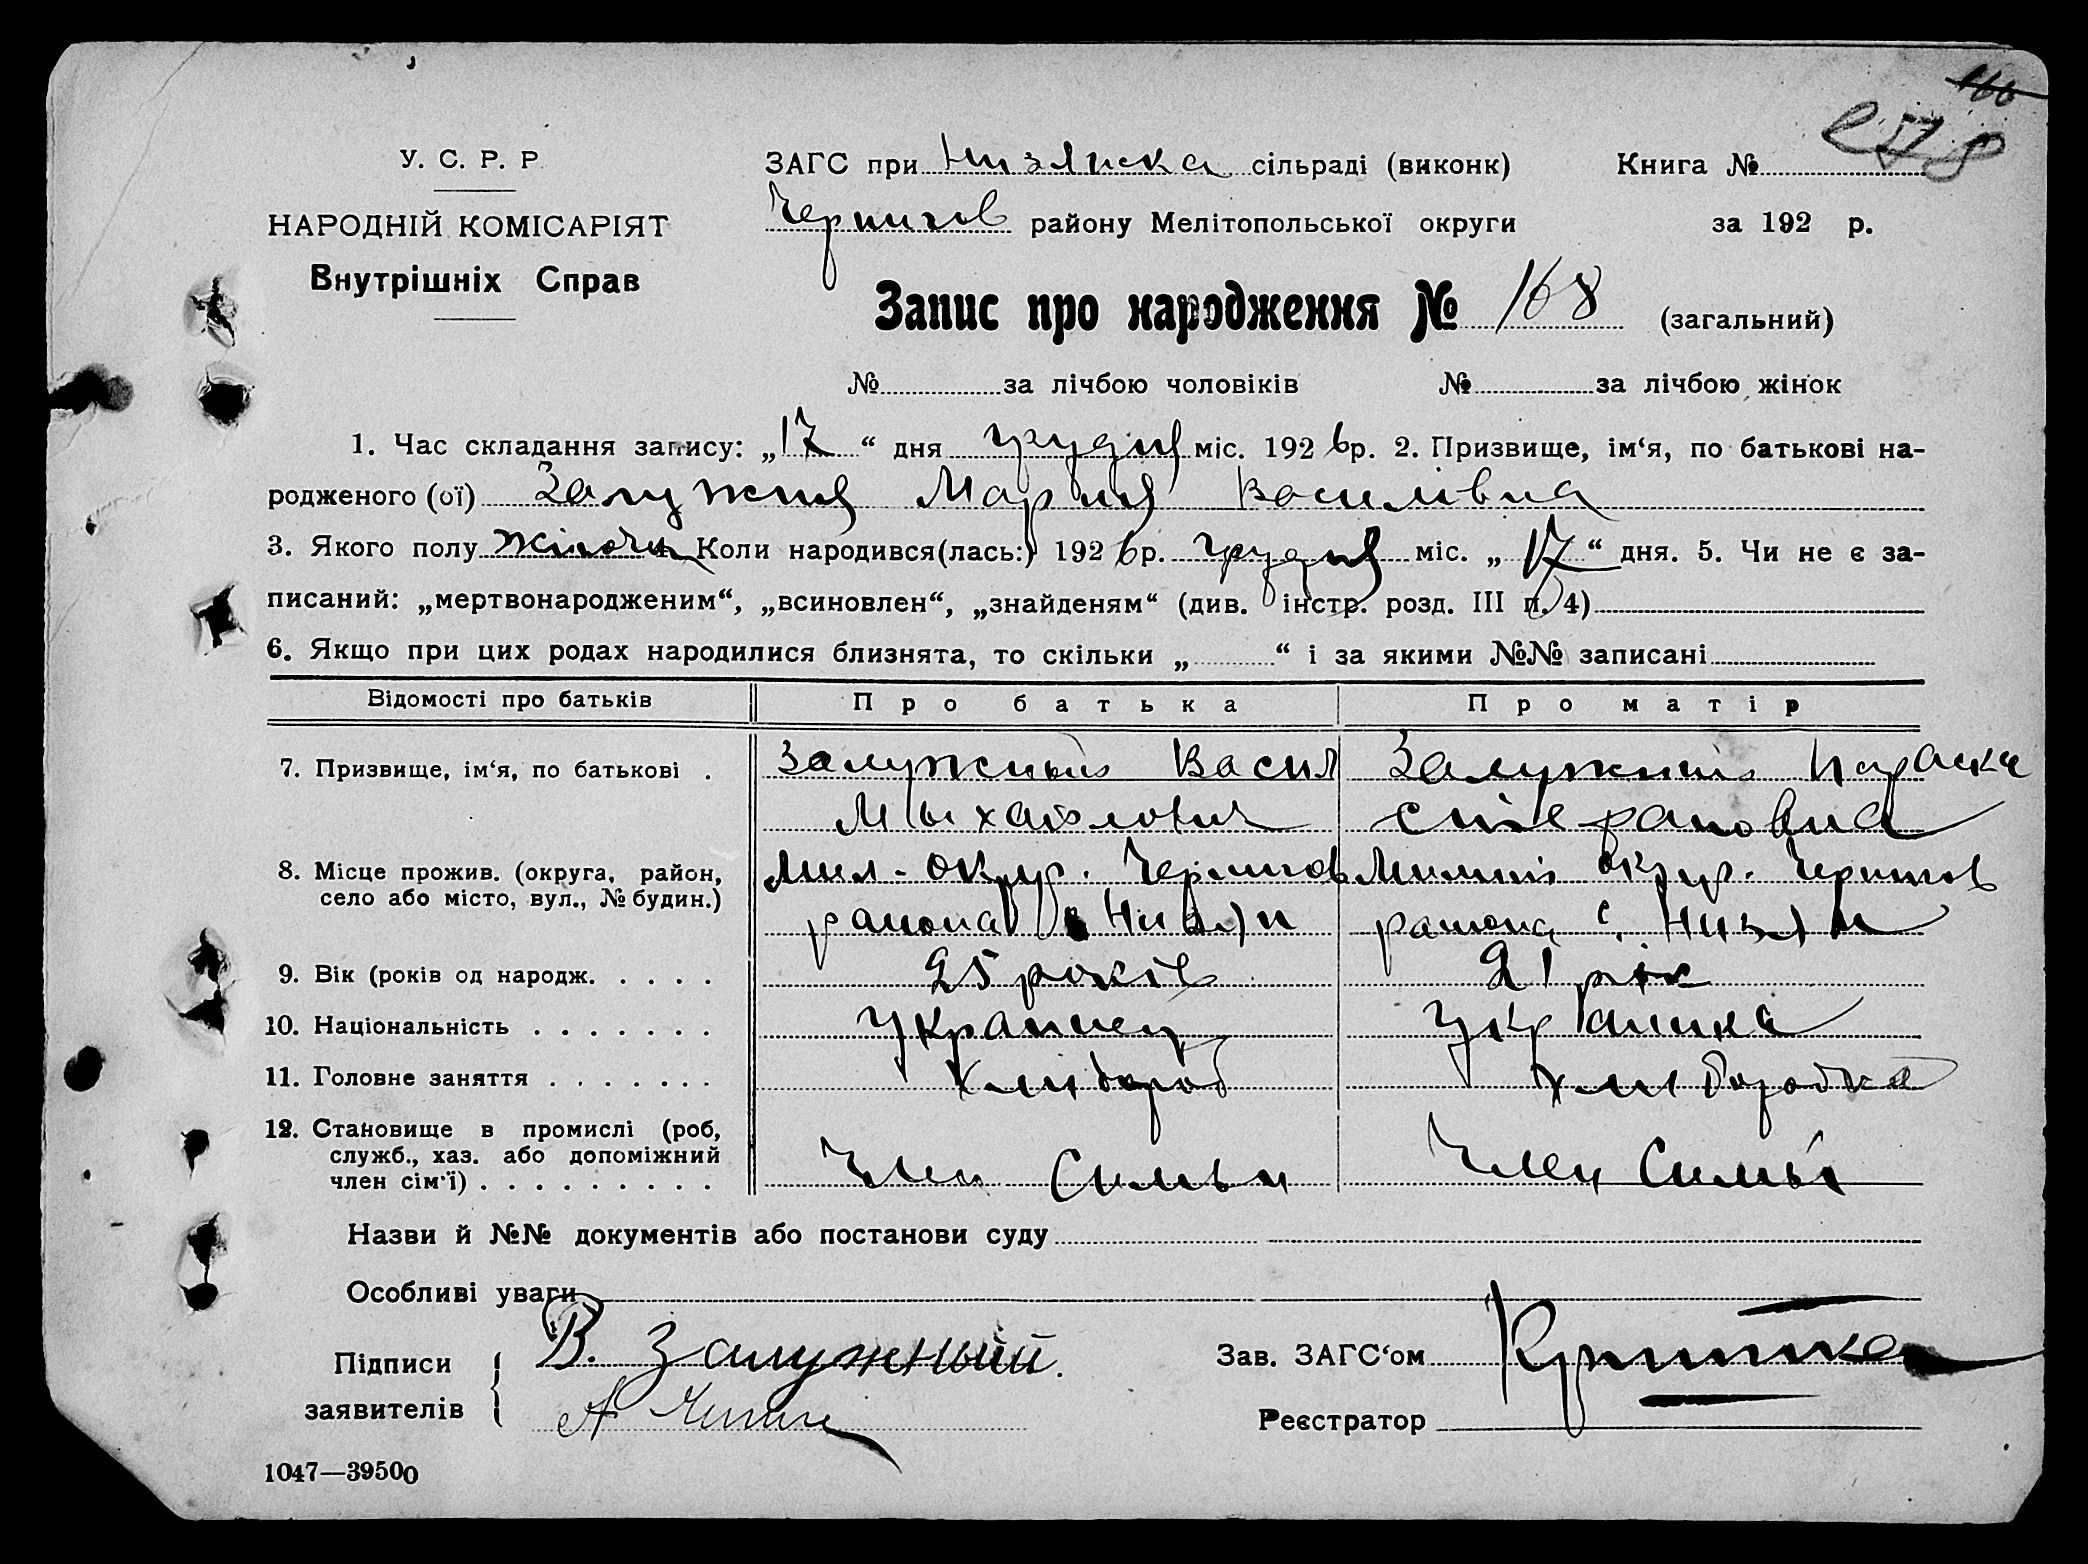 166
У. С. Р. Р.
НАРОДНІЙ КОМІСАРІЯТ
Внутрішніх Справ
ЗАГС при Низянска сільраді (виконк) Книга №
Чернигов району Мелітопольської округи за 192 р.
Запис про народження № 168 (загальний)
№ за лічбою чоловіків № за лічбою жінок
1. Час складання запису: „17“ дня грудня міс. 1926р. 2. Призвище, ім‘я, по батькові на-
родженого (ої) Залужния Мария Василівна
3. Якого полу жіночи 4. Коли народився(лась:) 1926р. грудня міс. „17“ дня. 5. Чи не є за-
писаний: „мертвонародженим“, „всиновлен“, „знайденям“ (див. інстр. розд. III п. 4)
6. Якщо при цих родах народилися близнята, то скільки „ “ і за якими №№ записані
Відомості про батьків Про батька Про матір
7. Призвище, ім‘я, по батькові . Залужный Васил Залужний Параска
Мыхайлович
8. Місце прожив. (округа, район, Мил-округ. Чернигов округ. Чернигов
село або місто, вул., № будин.) раиона Низян раиона с. Низян
9. Вік (років од народж. . . . . 25 років 21 рік
10. Національність . . . . . . . Украинец Украинка
11. Головне заняття . . . . . . . хлибороб хлиборобка
12. Становище в промислі (роб,
служб., хаз. або допоміжний
член сім‘ї) . . . . . . . . . Член Симьи Член Симьи
Назви й №№ документів або постанови суду
Особливі уваги
Підписи В. Залужный. Зав. ЗАГС‘ом
заявителів Реєстратор
1047—39500